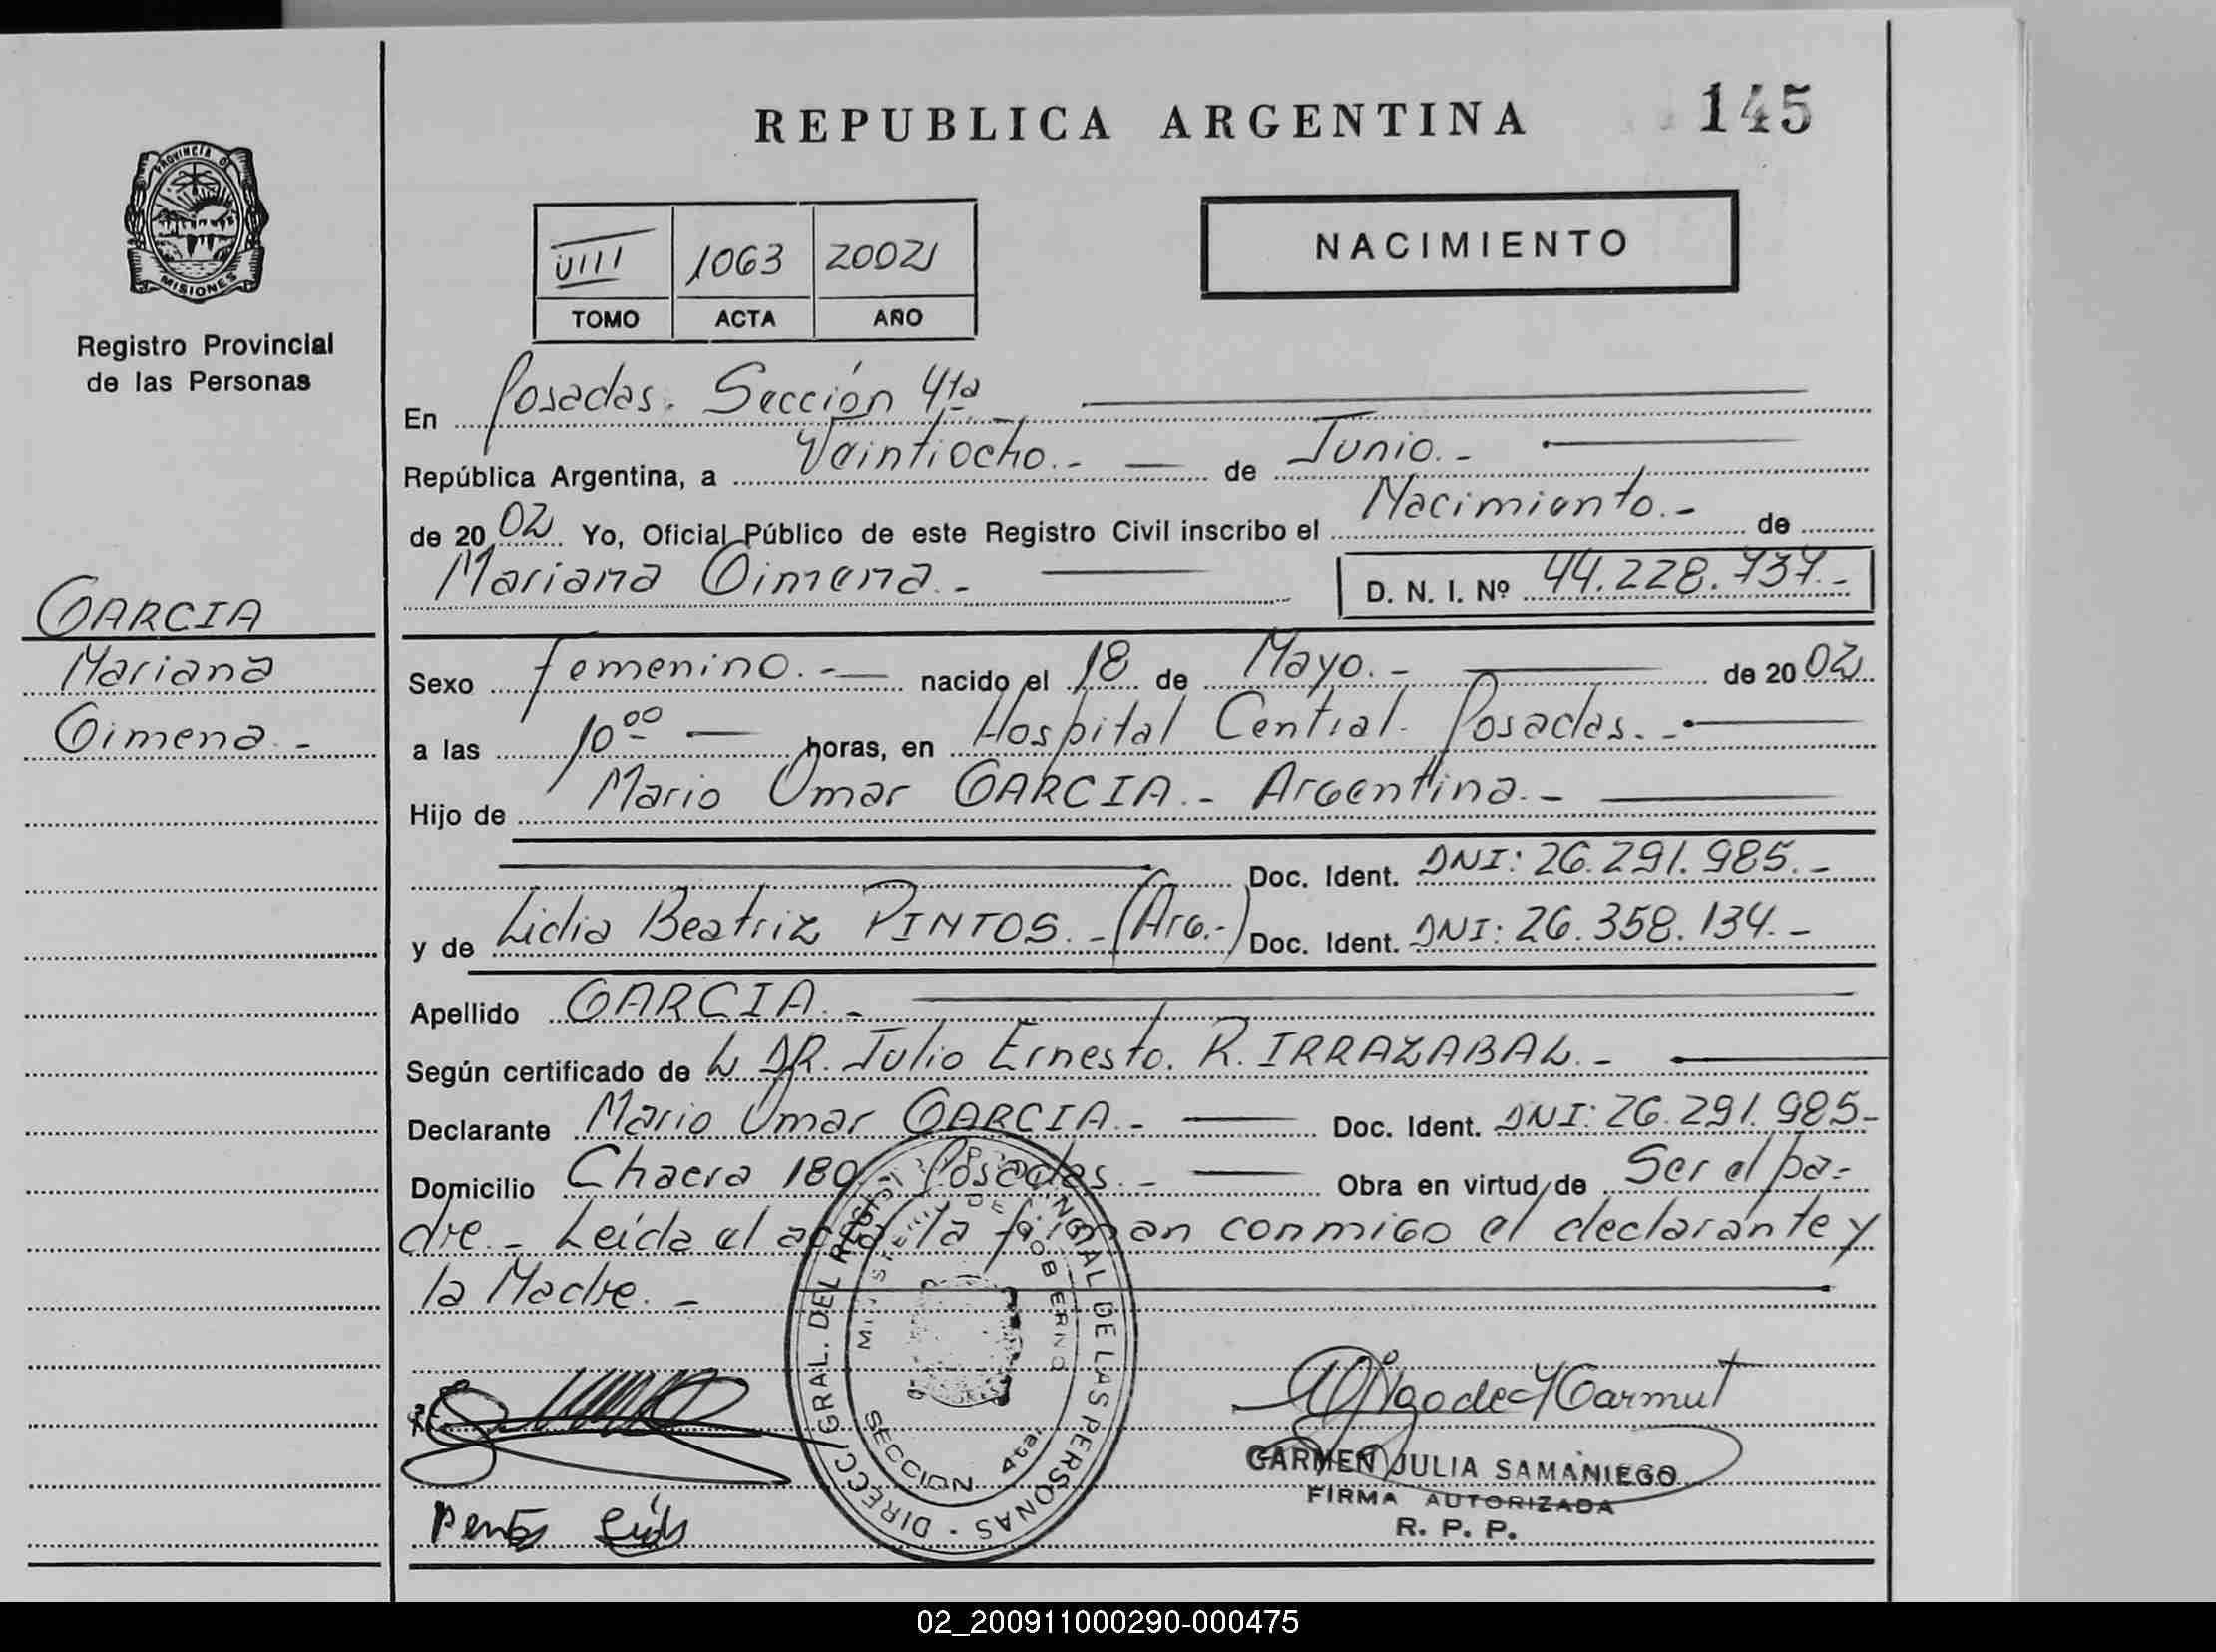 REPUBLICA ARGENTINA
145
PROVINCIA D
MISIONES
Registro Provincial
de las Personas
VIII 1063 2002
TOMO ACTA AÑO
NACIMIENTO
En Posadas. Sección 4ta
República Argentina, a Veintiocho.- de Junio.-
de 2002 Yo, Oficial Público de este Registro Civil inscribo el Nacimiento.- de
Mariana Gimena.- D. N. I. Nº 44.228.737.-
GARCIA
Mariana
Gimena.-
Sexo femenino.- nacido el 18 de Mayo.- de 2002
a las 10⁰⁰ horas, en Hospital Central. Posadas.-
Hijo de Mario Omar GARCIA.- Argentina.-
Doc. Ident. DNI: 26.291.985.-
y de Lidia Beatriz PINTOS.-(Arg.-) Doc. Ident. DNI: 26.358.134.-
Apellido GARCIA.-
Según certificado de L DR. Julio Ernesto. R. IRRAZABAL.-
Declarante Mario Omar GARCIA.- Doc. Ident. DNI: 26.291.985-
Domicilio Chacra 180 Posadas.- Obra en virtud de Ser el pa-
dre.- Leída el acta la firman conmigo el declarante y
la Madre.-
DIRECC. GRAL. DEL REGIST. PROVINCIAL DE LAS PERSONAS -
MINISTERIO DE GOBIERNO
SECCION 4ta.
CARMEN JULIA SAMANIEGO
FIRMA AUTORIZADA
R. P. P.
02_200911000290-000475